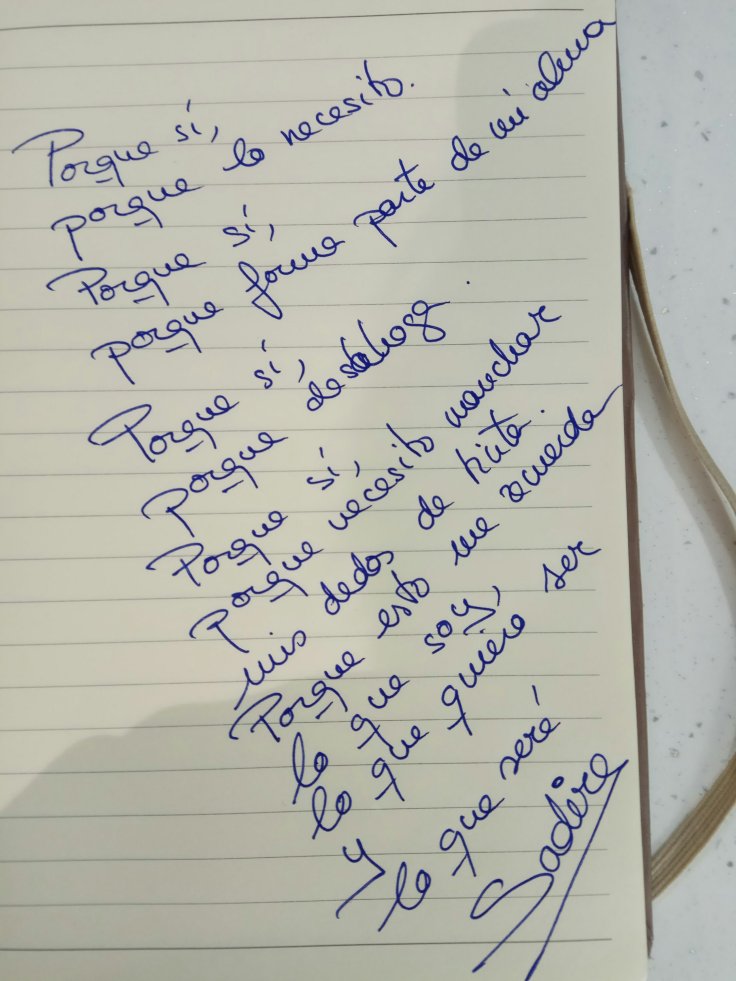 Porque sí,
porque lo necesito.
Porque sí,
porque forma parte de mi alma
Porque sí,
porque desahoga.
Porque sí,
porque necesito manchar
mis dedos de tinta.
Porque esto me recuerda
lo que soy,
lo que quiero ser
y
lo que seré
Sadire